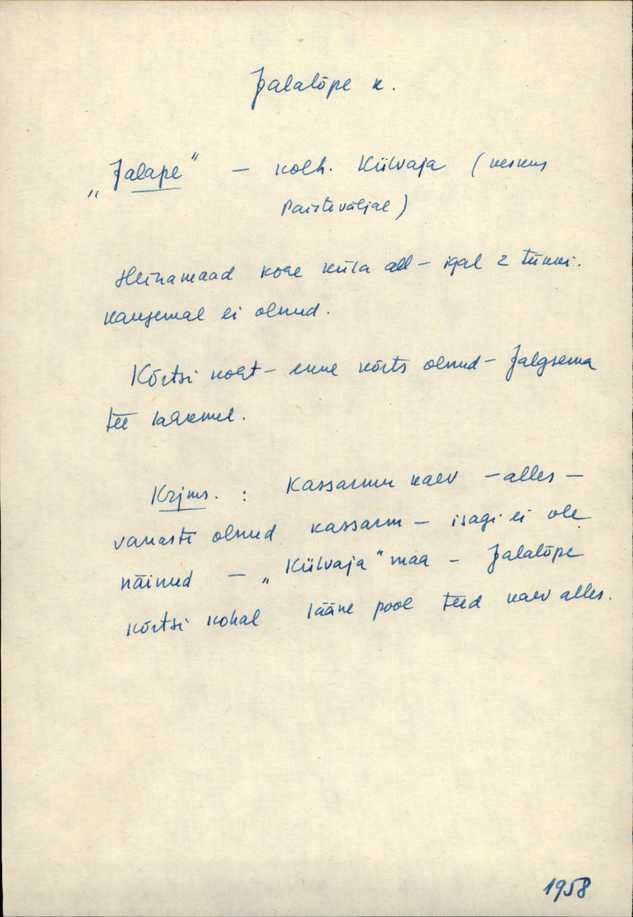 Jalalõpe k.
„Jalape" — kolh. Külvaja (keskus
Paisteväljal)
Heinamaad koge küla all – igal 2 tünni.
kaugemal ei olnud.
Kõrtsi koht – enne kõrts olnud – Jalgsema
tee lahkmel.
Krjms. : Kassarmu kaev – alles –
vanasti olnud kassarm – isagi ei ole
näinud – „Külvaja" maa – Jalalõpe
kõrtsi kohal lääne pool teed kaev alles.
1958